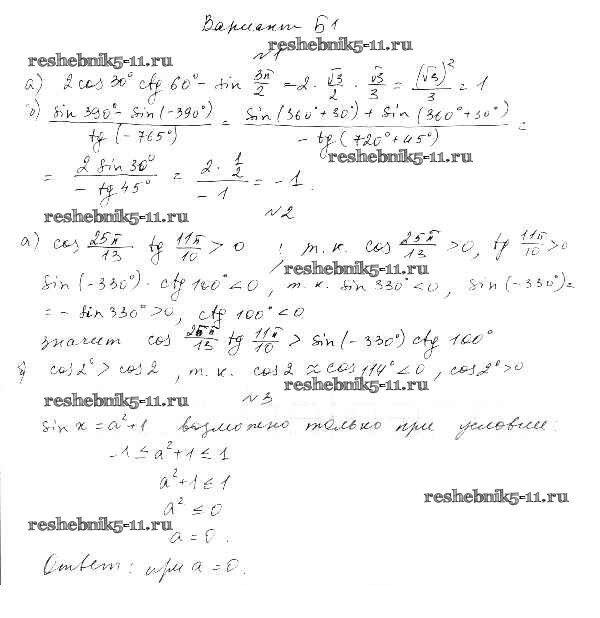 Вариант Б1
reshebnik5-11.ru
reshebnik5-11.ru
№1
а) 2 cos 30° ctg 60° - sin 3π/2 = 2 · √3/2 · √3/3 = (√3)²/3 = 1
б) (sin 390° - sin(-390°))/(tg(-765°)) = (sin(360°+30°) + sin(360°+30°))/(-tg(720°+45°)) =
reshebnik5-11.ru
= (2 sin 30°)/(-tg 45°) = (2 · 1/2)/(-1) = -1.
reshebnik5-11.ru
№2
а) cos 25π/13 tg 11π/10 > 0 ; т.к. cos 25π/13 > 0, tg 11π/10 > 0
reshebnik5-11.ru
sin(-330°) · ctg 100° < 0, т.к. sin 330° < 0, sin(-330°) =
= - sin 330° > 0, ctg 100° < 0
значит cos 25π/13 tg 11π/10 > sin(-330°) ctg 100°
б) cos 2° > cos 2, т.к. cos 2 ≈ cos 114° < 0, cos 2° > 0
reshebnik5-11.ru
reshebnik5-11.ru
№3
sin x = a² + 1 возможно только при условии:
-1 ≤ a² + 1 ≤ 1
a² + 1 ≤ 1
reshebnik5-11.ru
a² ≤ 0
reshebnik5-11.ru
a = 0.
Ответ: при a = 0.